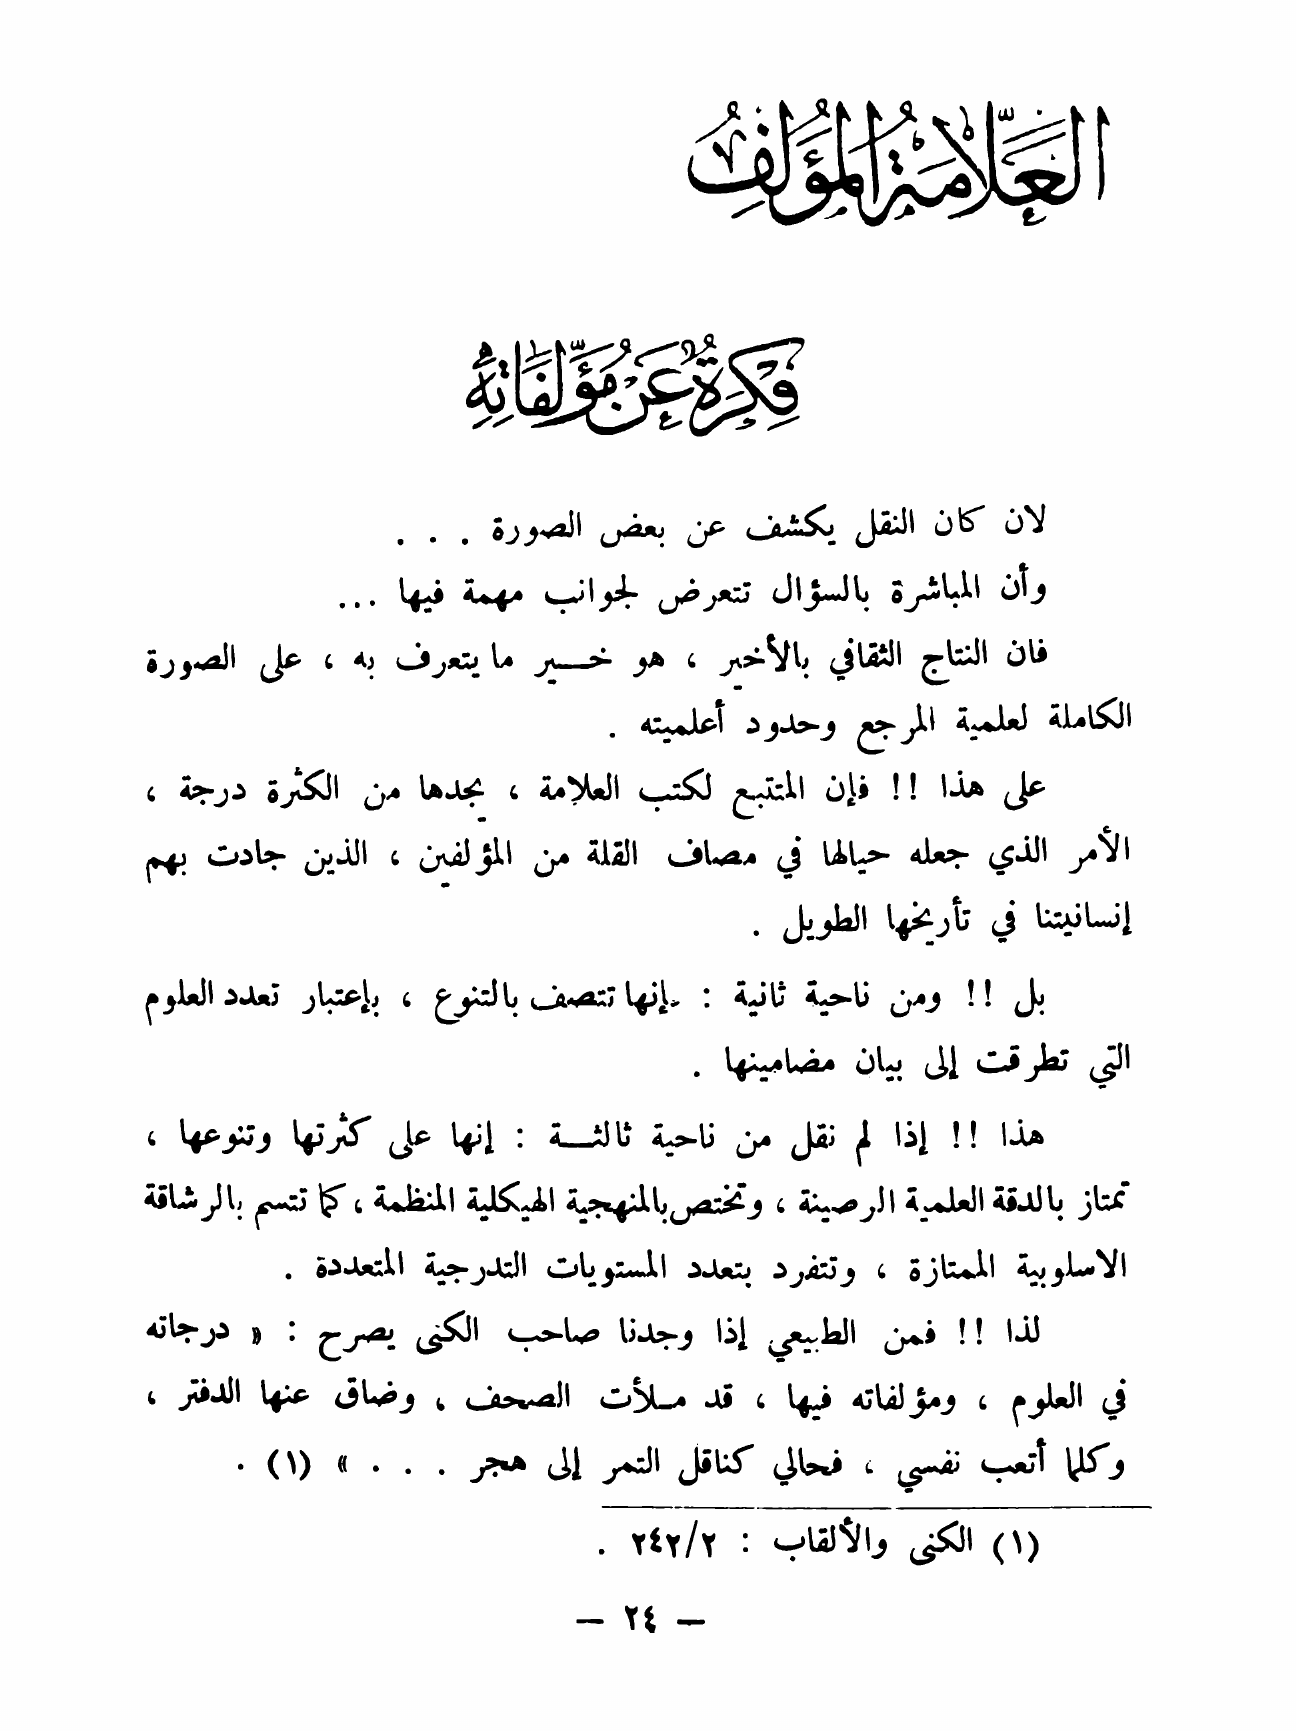 العَلّامَةُ المُؤَلِّفُ
فِكْرَةٌ عَنْ مُؤَلَّفَاتِهِ
لان كان النقل يكشف عن بعض الصورة . . .
وأن المباشرة بالسؤال تتعرض لجوانب مهمة فيها ...
فان النتاج الثقافي بالأخير ، هو خـــير ما يتعرف به ، على الصورة
الكاملة لعلمية المرجع وحدود أعلميته .
على هذا !! فإن المتتبع لكتب العلامة ، يجدها من الكثرة درجة ،
الأمر الذي جعله حيالها في مصاف القلة من المؤلفين ، الذين جادت بهم
إنسانيتنا في تأريخها الطويل .
بل !! ومن ناحية ثانية : إنها تتصف بالتنوع ، بإعتبار تعدد العلوم
التي تطرقت إلى بيان مضامينها .
هذا !! إذا لم نقل من ناحية ثالثـــة : إنها على كثرتها وتنوعها ،
تمتاز بالدقة العلمية الرصينة ، وتختص بالمنهجية الهيكلية المنظمة ، كما تتسم بالرشاقة
الاسلوبية الممتازة ، وتتفرد بتعدد المستويات التدرجية المتعددة .
لذا !! فمن الطبيعي إذا وجدنا صاحب الكنى يصرح : « درجاته
في العلوم ، ومؤلفاته فيها ، قد مـلأت الصحف ، وضاق عنها الدفتر ،
وكلما أتعب نفسي ، فحالي كناقل التمر إلى هجر . . . » (١) .
(١) الكنى والألقاب : ٢٤٢/٢ .
— ٢٤ —